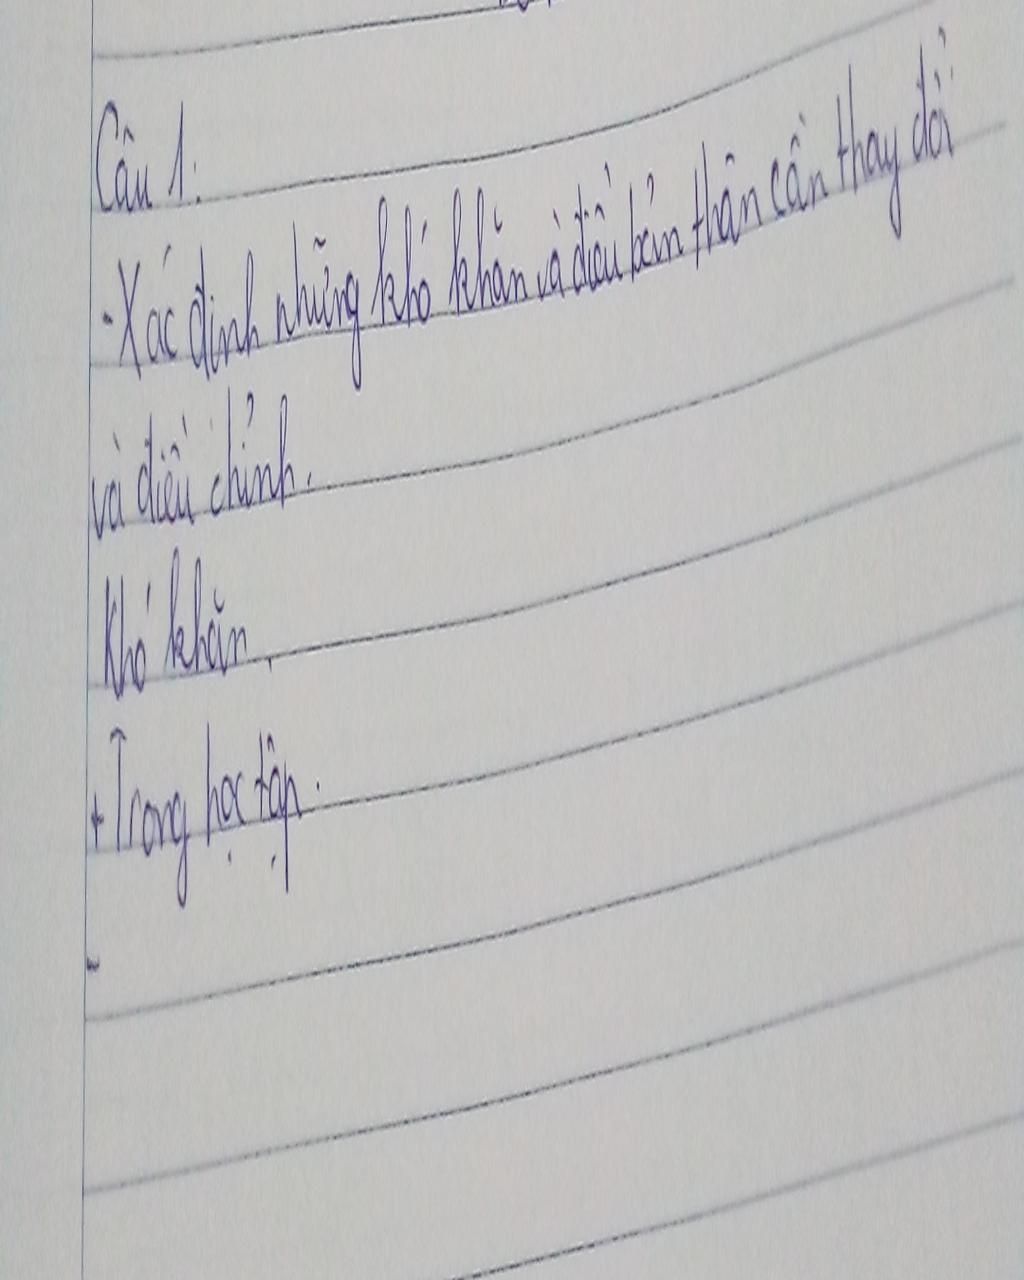 Câu 1:
- Xác định những khó khăn và điều bản thân cần thay đổi
và điều chỉnh.
Khó khăn.
+ Trong học tập.
-